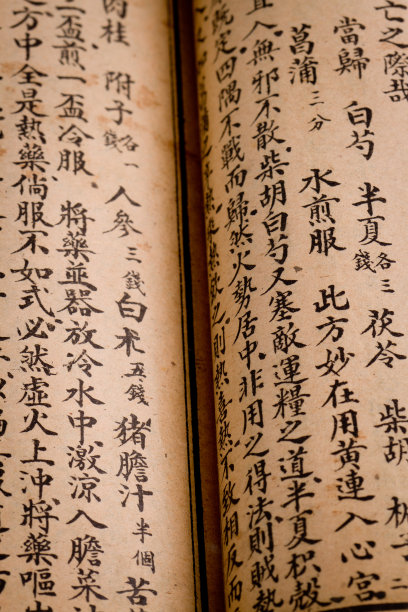 亡之際哉
當歸 白芍 半夏各三錢 茯苓 柴胡
菖蒲三分 水煎服 此方妙在用黃連入心宮
直入無邪不散柴胡白芍又塞敵運糧之道半夏枳殼
既定四隅不戰而歸然火勢居中非用之得法則賊勢
之則熱喜熱不致相反而
肉桂 附子各一錢 人參三錢 白朮五錢 豬膽汁半個 苦
二盃煎一盃冷服 將藥並器放冷水中激涼入膽菜油
之方中全是熱藥倘服不如式必然虛火上沖將藥嘔